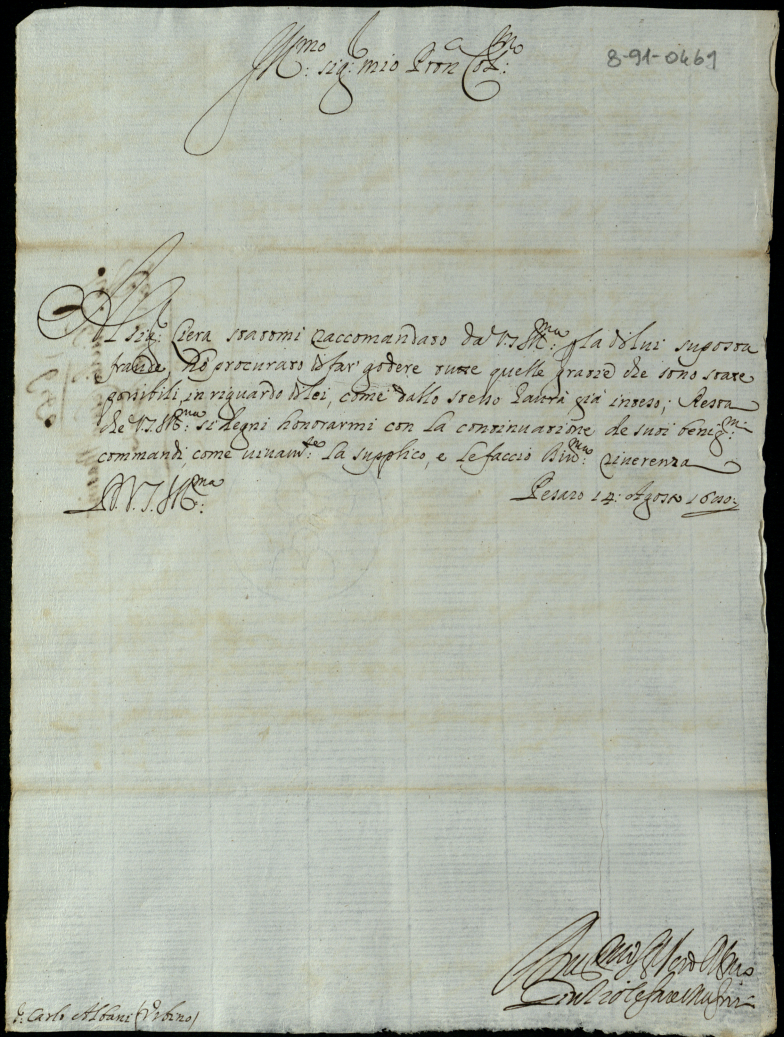 Ill.mo sig.r mio Pron Col.mo
8-91-0461
Al sig.r Ciera statomi raccomandato da V.S. Ill.ma p la di lui suposta
fraude, hò procurato di far' godere tutte quelle grazie che sono state
possibili, in riguardo di lei, come dallo stesso haurà già inteso; Resta
che V.S. Ill.ma si degni honorarmi con la continuatione de suoi benig.mi
commandi, come viuam.te la supplico, e le faccio riuerenza
D. V. S. Ill.ma
Pesaro 14: Agosto
S: Carlo Albani (Vrbino)